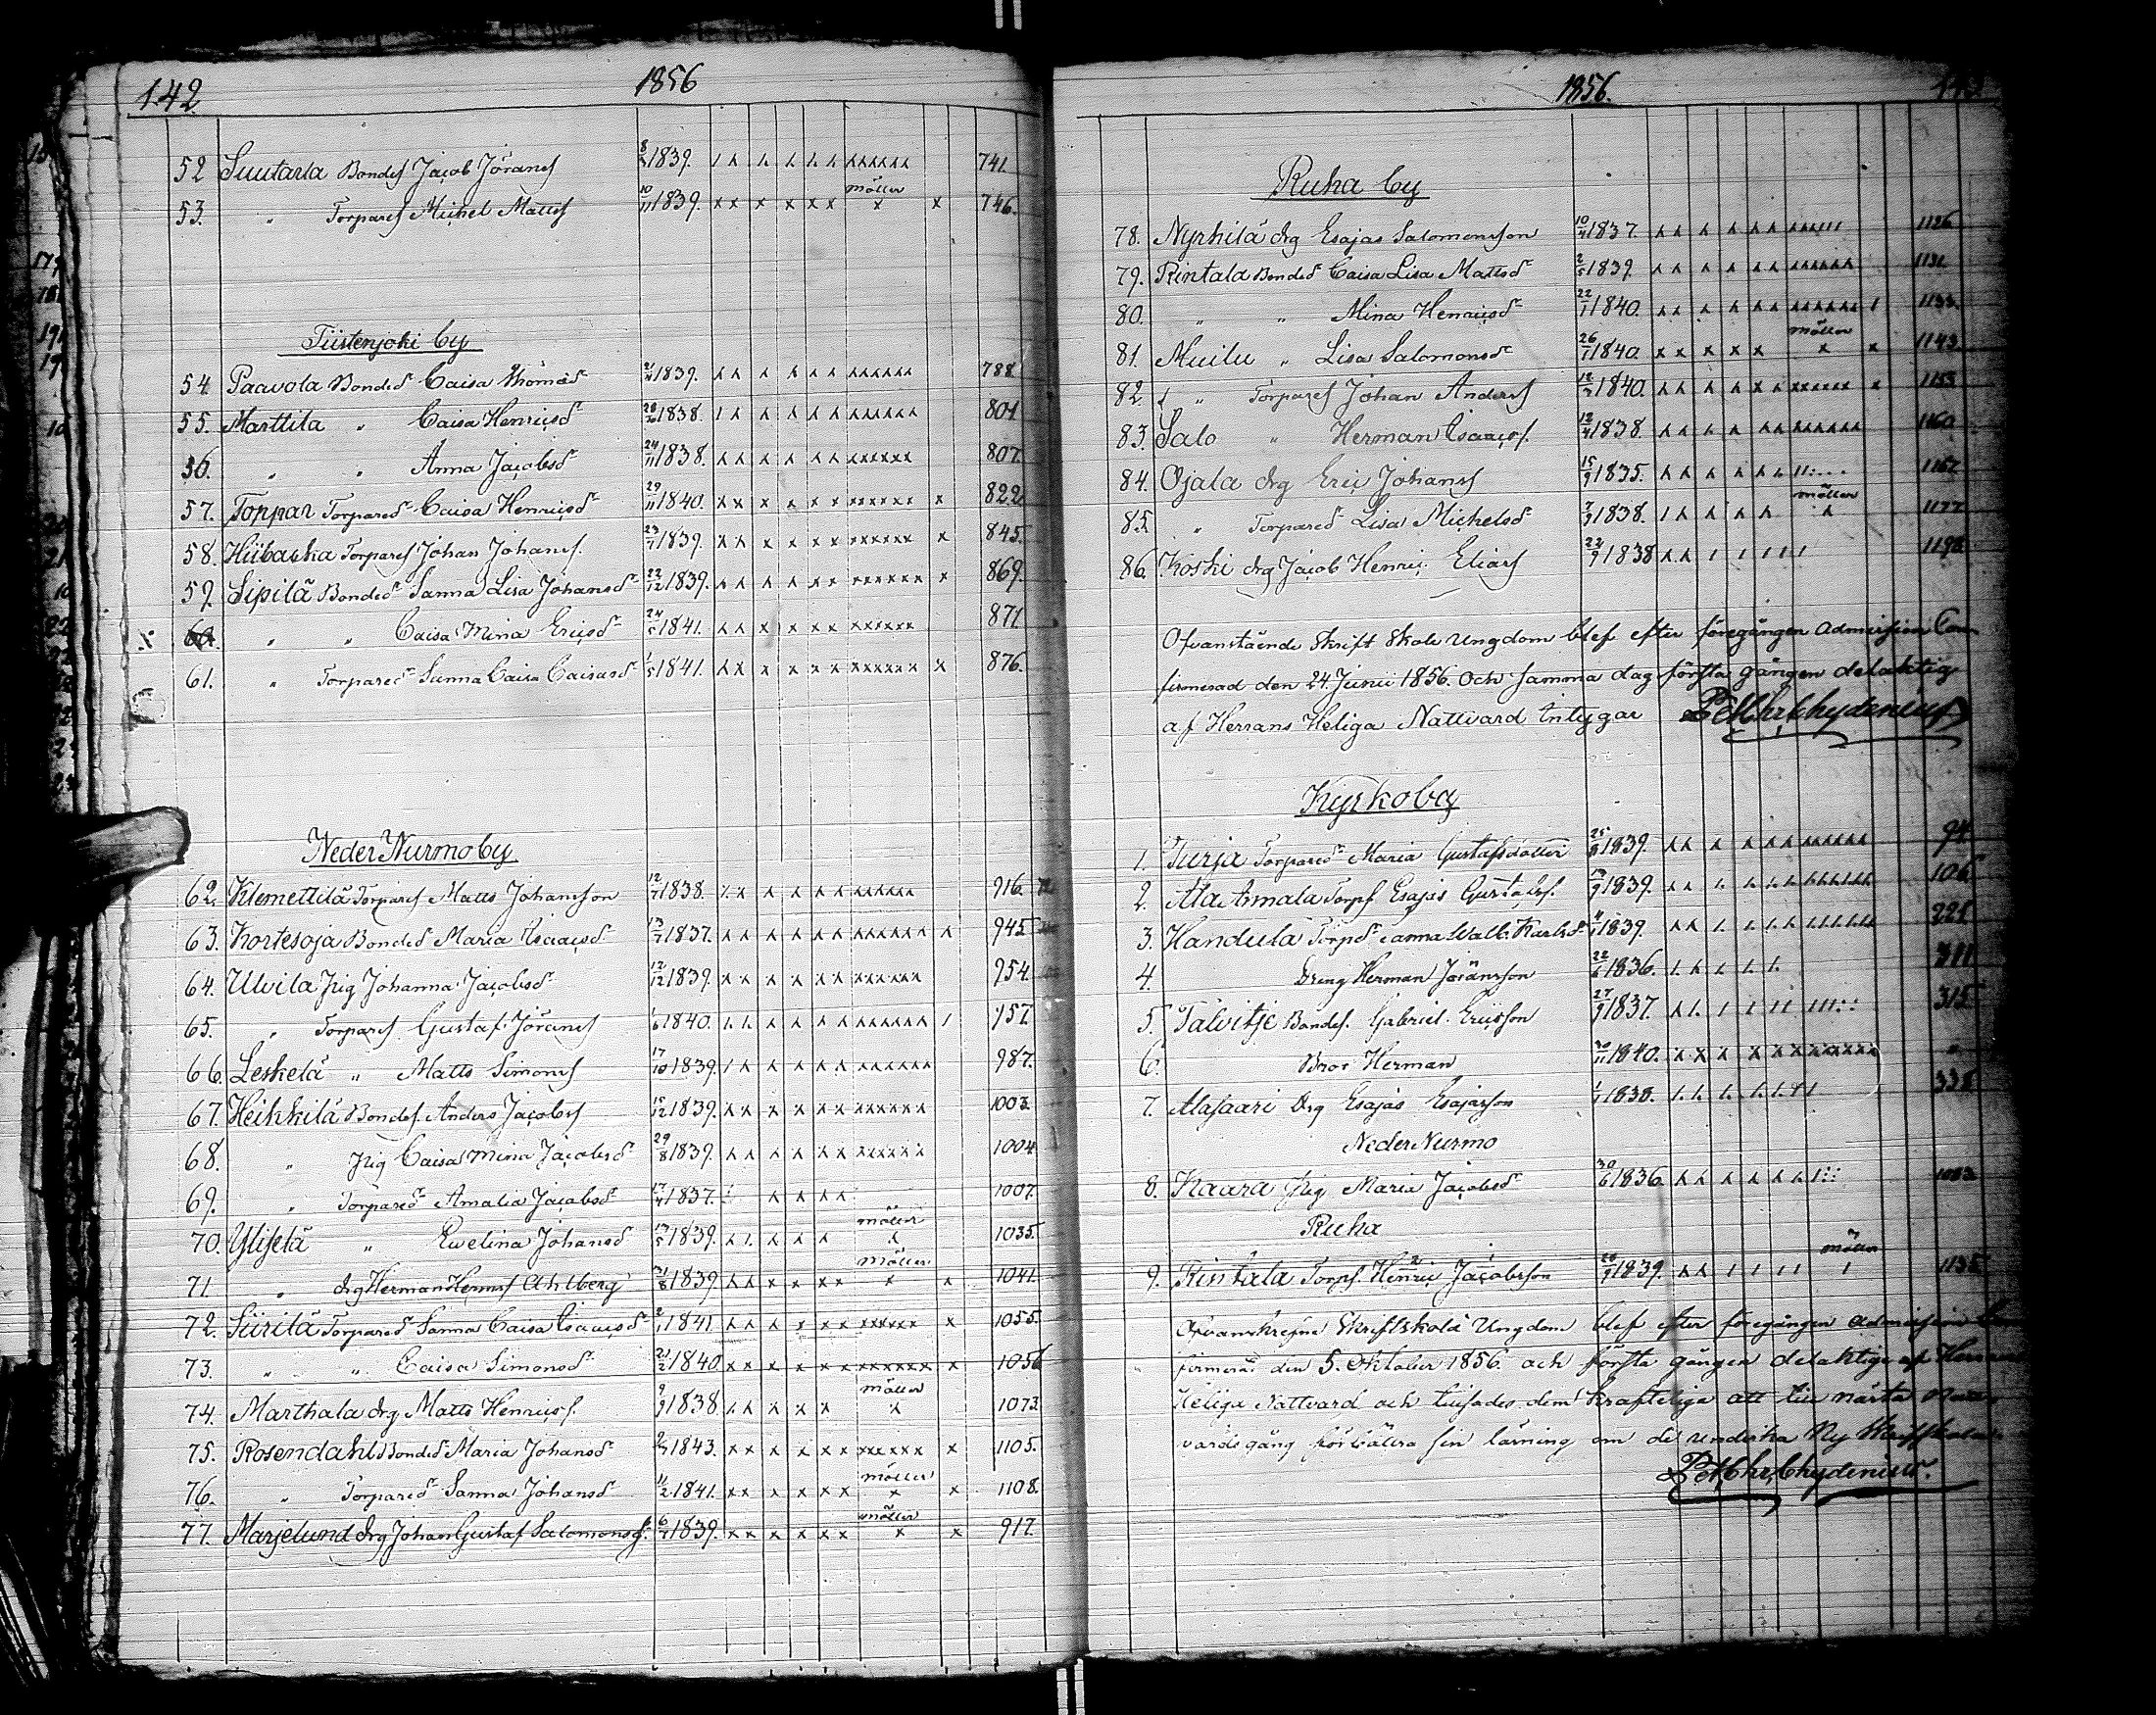 142 1856
52 Suutarla Bondes Jacob Jörans 1839. 741.
möller
53. " Torpares Michel Matts 10/11 1839. 746.
Tiistenjoki by
54. Paavola Bonded. Caisa Thomæd. 1839. 788.
55. Marttila " Caisa Henricsd. 1838. 801.
56. " " Anna Jacobsd. 24/11 1838. 807.
57. Toppar Torpared. Caisa Henricsd. 29/11 1840. 822.
58. Hiibacka Torpares Johan Johans. 23/7 1839. 845.
59. Sipilä Bonded. Sanna Lisa Johansd. 22/12 1839. 869.
60. " " Caisa Mina Ericsd. 24/5 1841. 871
61. " Torpared. Sanna Caisa Caisasd. 1/5 1841. 876.
Neder Nurmo by
62. Klemettilä Torpares Matts Johansson 12/7 1838. 916.
63. Kortesoja Bonded. Maria Isaacsd. 13/7 1837. 945
64. Ulvila Pig Johanna Jacobsd. 12/12 1839. 954.
65. " Torpares Gustaf Jörans 1840. 957.
66. Leskelä " Matts Simons 17/10 1839. 987.
67. Heikkilä Bondes. Anders Jacobss 15/12 1839. 1003.
68. " Pig Caisa Mina Jacobsd. 29/8 1839. 1004
69. " Torpared. Amalia Jacobsd. 17/4 1837. 1007.
möller
70. Yliselä " Ewelina Johansd 13/5 1839. 1035.
möller
71. " drg Herman Henrics Ahlberg 31/8 1839. 1041.
72. Siirilä Torpared. Sanna Caisa Isaacsd. 2/1 1841 1055.
73. " " Caisa Simonsd. 21/2 1840 1056
möller
74. Marthala drg Matts Henrics. 9/9 1838 1073.
75. Rosendahl Bonded. Maria Johansd. 1843. 1105.
möller
76. " Torpared. Sanna Johansd. 11/2 1841. 1108.
möller
77. Marjelund drg Johan Gustaf Salomons. 1839. 917.
1856.
Ruha by
78. Nyrhilä drg Esajas Salomonsson 10/4 1837. 1126
79. Rintala Bonded. Caisa Lisa Mattsd. 2/5 1839 1131
80. " " Mina Henricsd. 22/1 1840. 1133.
möller
81. Muilu " Lisa Salomonsd. 26/1 1840. 1143
82. " Torpares Johan Anders 1840. 1153
83. Salo " Herman Isaacs. 12/4 1838. 1160
84. Ojala drg Eric Johans 15/9 1835. 1167
möller
85. " Torpared. Lisa Michelsd. 1838. 1177
86. Koski drg Jacob Henric Elias 22/9 1838 1198
Ofvanstående Skrift Skole Ungdom blef efter föregången admission Con
firmerad den 24. Junii 1856. och samma dag första gången delaktig
af Herrans Heliga Nattvard Intygar Pet Chr. Chydenius
Kyrkoby
1. Turja Torpared. Maria Gustafsdotter 1839. 94
2. Ala Armala Torps Esajas Gustafss. 1839. 106
3. Handula Torpd. Sanna Walb. Karlsd. 1839. 221
4. Dräng Herman Jöransson 1836. 311
5. Talvitje Bondes. Gabriel Ericsson 27/9 1837. 315
6. Bror Herman 30/11 1840. "
7. Alasaari Drg Esajas Esajasson 1/1 1838. 338
Neder Nurmo
8. Kaara Pig Maria Jacobsd. 30/6 1836. 1083
Ruha
möller
9. Rintala Torps. Henric Jacobsson 1839. 1135
Ofvanskrefne Skriftskola Ungdom blef efter föregången admission
firmerad den 5. Oktober 1856 och första gången delaktige af
Heliga Nattvard och dem kraftelige att till nästa
vardsgång förbättra sin läsning om de undvika Ny Skriftskola
Pet Chr. Chydenius.